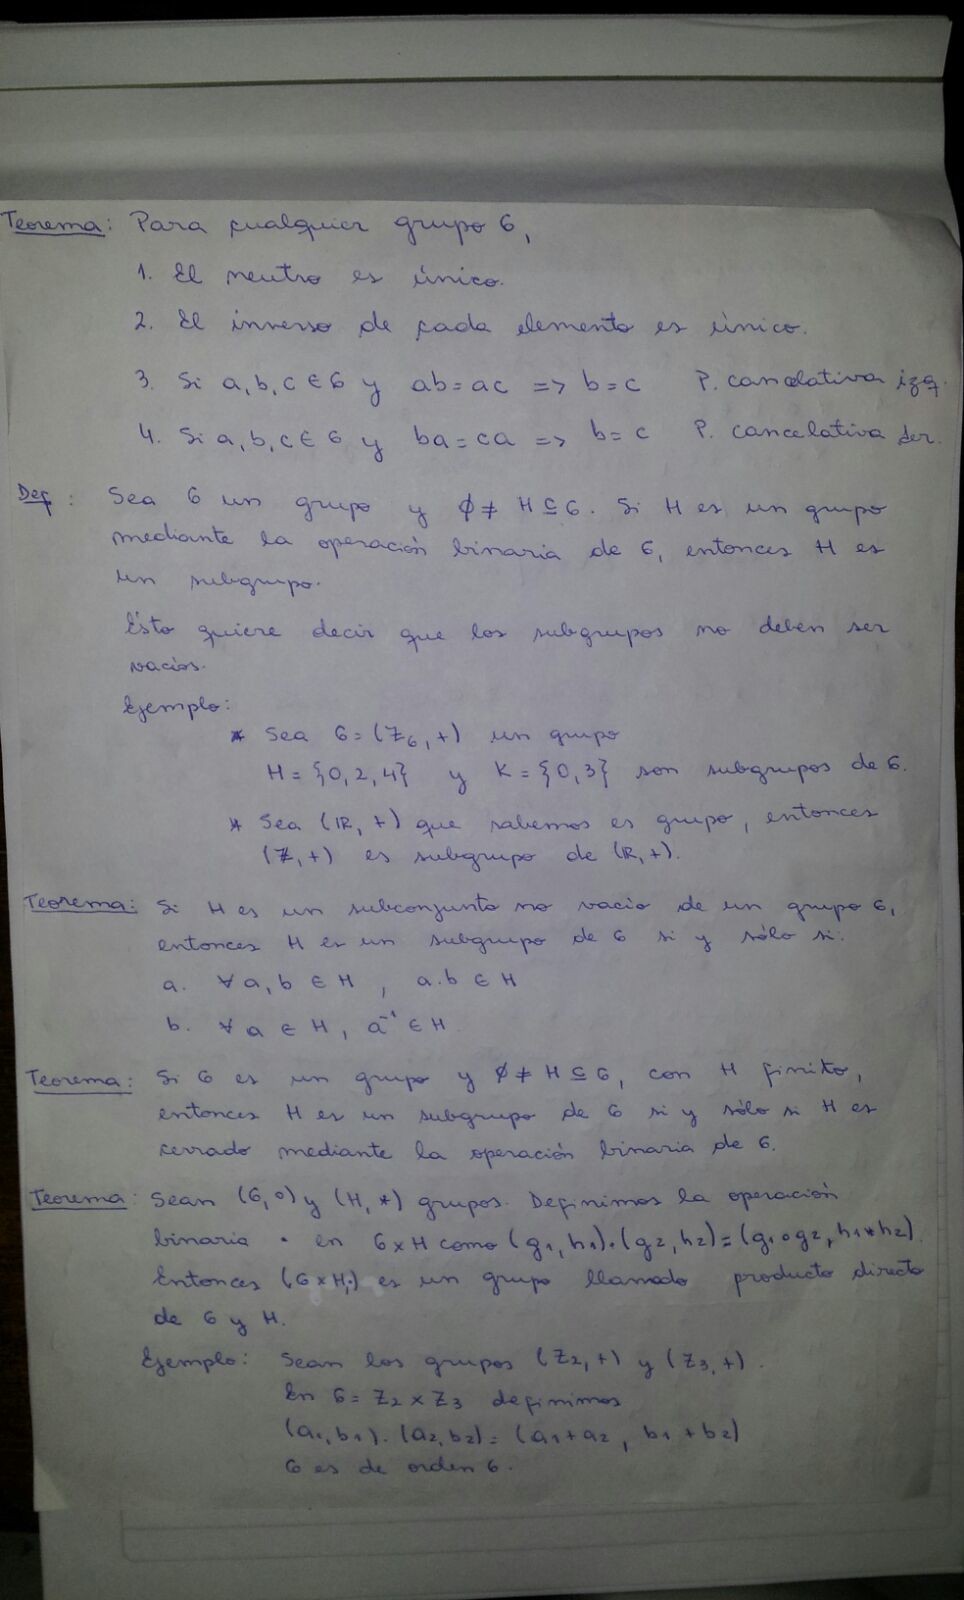 Teorema: Para cualquier grupo G,
1. El neutro es único.
2. El inverso de cada elemento es único.
3. Si a, b, c ∈ G y ab = ac => b = c P. cancelativa izq.
4. Si a, b, c ∈ G y ba = ca => b = c P. cancelativa der.
Def: Sea G un grupo y ∅ ≠ H ⊆ G. Si H es un grupo
mediante la operación binaria de G, entonces H es
un subgrupo.
Ésto quiere decir que los subgrupos no deben ser
vacíos.
Ejemplo:
* Sea G = (Z₆, +) un grupo
H = {0, 2, 4} y K = {0, 3} son subgrupos de G.
* Sea (ℝ, +) que sabemos es grupo, entonces
(Z, +) es subgrupo de (ℝ, +).
Teorema: Si H es un subconjunto no vacío de un grupo G,
entonces H es un subgrupo de G si y sólo si:
a. ∀ a, b ∈ H , a.b ∈ H
b. ∀ a ∈ H, a⁻¹ ∈ H
Teorema: Si G es un grupo y ∅ ≠ H ⊆ G, con H finito,
entonces H es un subgrupo de G si y sólo si H es
cerrado mediante la operación binaria de G.
Teorema: Sean (G, o) y (H, *) grupos. Definimos la operación
binaria · en G x H como (g₁, h₁)·(g₂, h₂) = (g₁ o g₂, h₁ * h₂).
Entonces (G x H, ·) es un grupo llamado producto directo
de G y H.
Ejemplo: Sean los grupos (Z₂, +) y (Z₃, +).
En G = Z₂ x Z₃ definimos
(a₁, b₁) · (a₂, b₂) = (a₁ + a₂ , b₁ + b₂)
G es de orden 6.